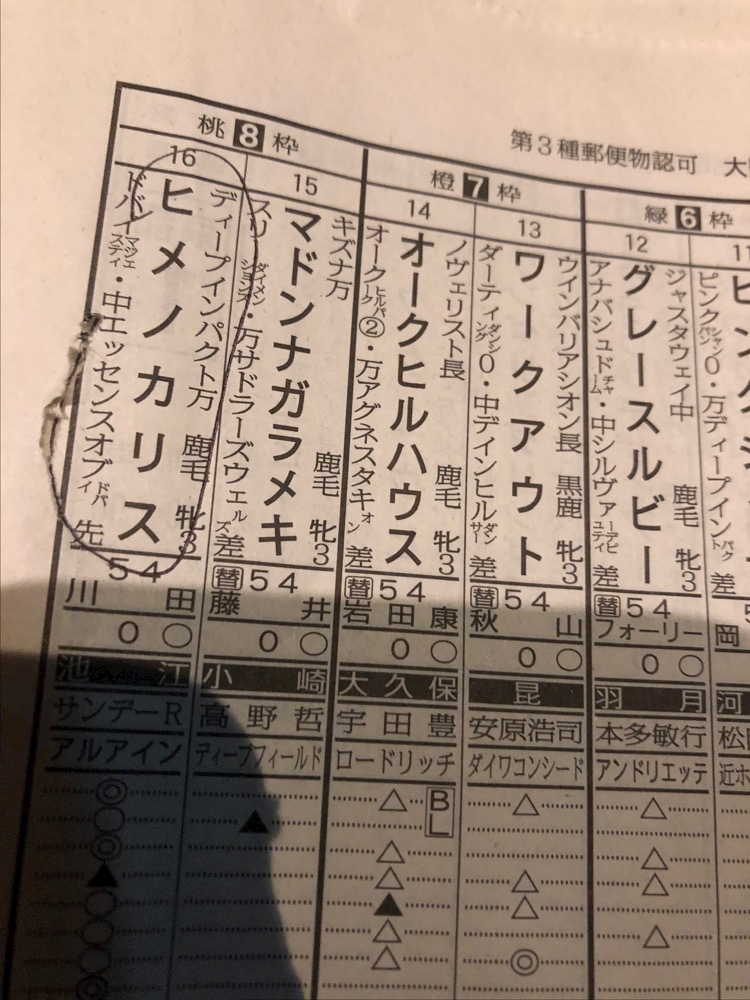 第3種郵便物認可 大
桃8枠
16
ディープインパクト万 鹿毛 牝3
ヒメノカリス
ドバイマジェスティ・中エッセンスオブドバイ 先
54
川田
0 ○
池江
サンデーR
アルアイン
◎
○
◎
▲
○
○
○
◎
15
キズナ万 鹿毛 牝3
マドンナガラメキ
スリーディメンションズ・万サドラーズウェルズ 差
替54
藤井
0 ○
小崎
高野哲
ディープフィールド
▲
橙7枠
14
ノヴェリスト長 鹿毛 牝3
オークヒルハウス
オークヒルパーク②・万アグネスタキオン 差
替54
岩田康
0 ○
大久保
宇田豊
ロードリッチ
△ BL
△
△
▲
△
△
13
ウインバリアシオン長 黒鹿 牝3
ワークアウト
ダーティダンシング0・中デインヒルダンサー 差
替54
秋山
0 ○
昆
安原浩司
ダイワコンシード
△
△
△
◎
緑6枠
12
ジャスタウェイ中 鹿毛 牝3
グレースルビー
アナバシュドチャーム・中シルヴァーデピュティ 差
替54
フォーリー
0 ○
羽月
本多敏行
アンドリエッテ
△
△
△
△
11
ピンクシャンパン0・万ディープインパクト 差
岡
河
松
近ホ